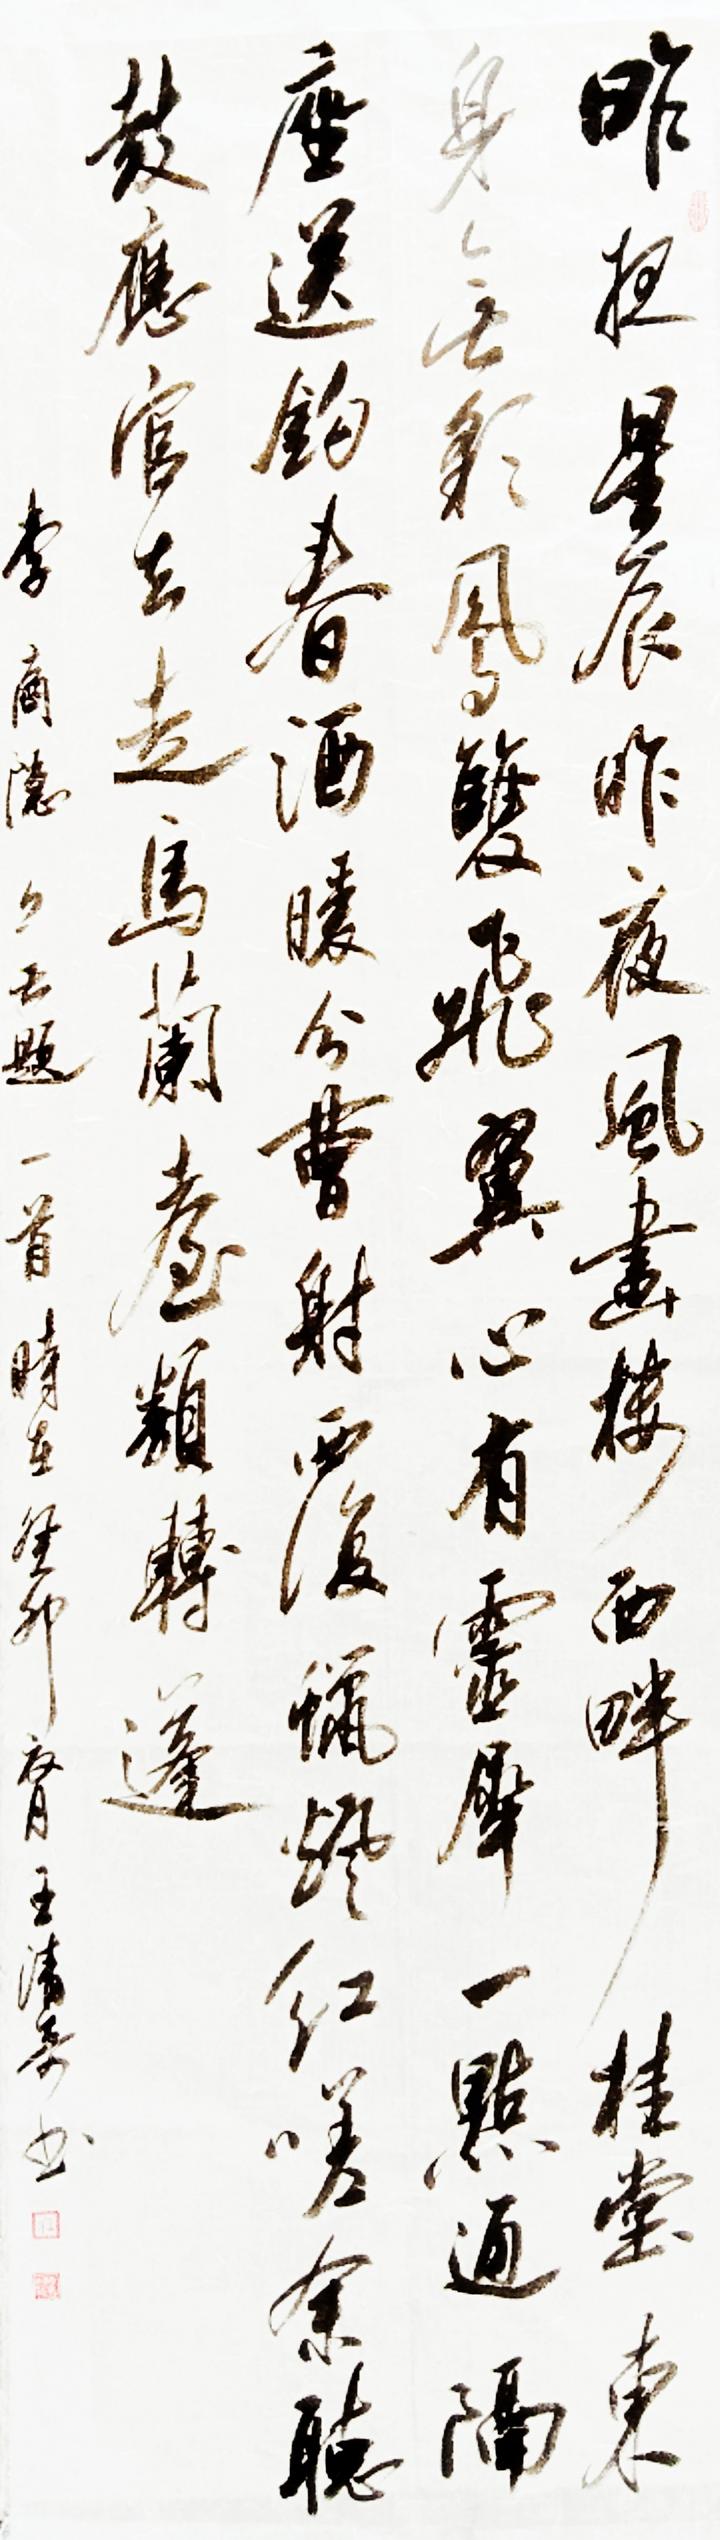 昨夜星辰昨夜風畫樓西畔桂堂東
身無彩鳳雙飛翼心有靈犀一點通隔
座送鈎春酒暖分曹射覆蠟燈紅嗟余聽
鼓應官去走馬蘭臺類轉蓬
李商隱無題一首時在癸卯 王清 书